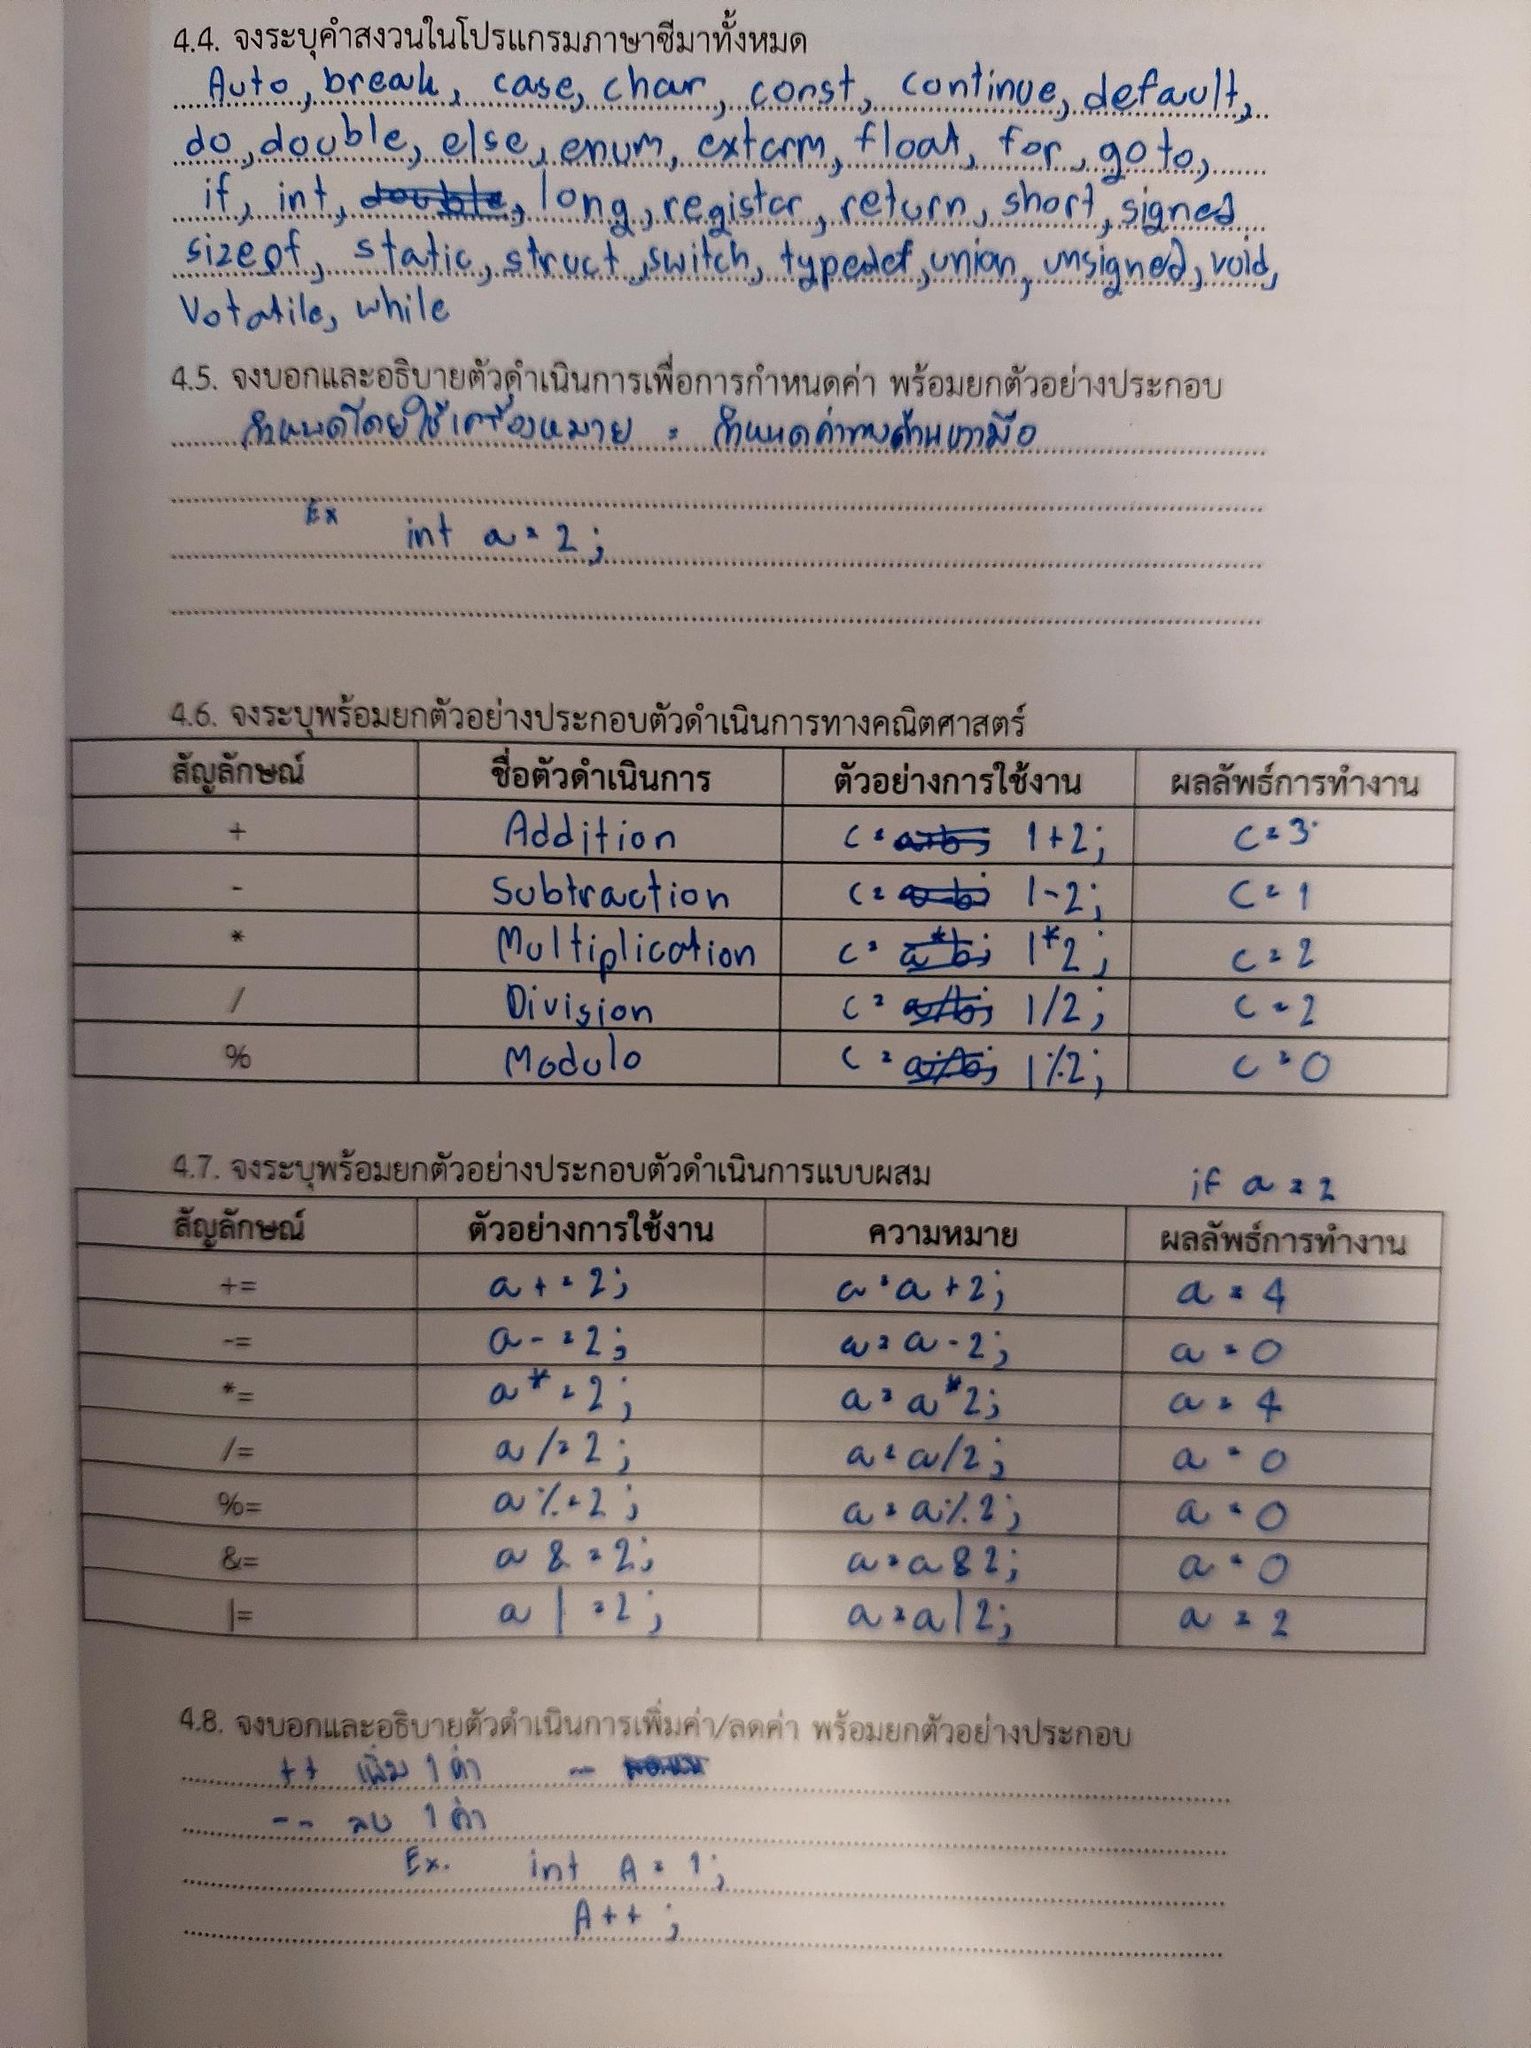 4.4. จงระบุคำสงวนในโปรแกรมภาษาซีมาทั้งหมด
Auto, break, case, char, const, continue, default,
do, double, else, enum, extarm, float, for, goto,
if, int, double, long, registar, return, short, signed
sizeof, static, struct, switch, typedef, union, unsigned, void,
Votatile, while
4.5. จงบอกและอธิบายตัวดำเนินการเพื่อการกำหนดค่า พร้อมยกตัวอย่างประกอบ
กำหนดโดยใช้เครื่องหมาย = กำหนดค่าทางด้านขวามือ
Ex int a = 2;
4.6. จงระบุพร้อมยกตัวอย่างประกอบตัวดำเนินการทางคณิตศาสตร์
สัญลักษณ์ ชื่อตัวดำเนินการ ตัวอย่างการใช้งาน ผลลัพธ์การทำงาน
+ Addition c = a+b; 1+2; c = 3
- Subtraction c = a-b; 1-2; c = 1
* Multiplication c = a*b; 1*2; c = 2
/ Division c = a/b; 1/2; c = 2
% Modulo c = a%b; 1%2; c = 0
4.7. จงระบุพร้อมยกตัวอย่างประกอบตัวดำเนินการแบบผสม if a = 2
สัญลักษณ์ ตัวอย่างการใช้งาน ความหมาย ผลลัพธ์การทำงาน
+= a += 2; a = a + 2; a = 4
-= a -= 2; a = a - 2; a = 0
*= a *= 2; a = a * 2; a = 4
/= a /= 2; a = a / 2; a = 0
%= a %= 2; a = a % 2; a = 0
&= a &= 2; a = a & 2; a = 0
|= a |= 2; a = a | 2; a = 2
4.8. จงบอกและอธิบายตัวดำเนินการเพิ่มค่า/ลดค่า พร้อมยกตัวอย่างประกอบ
++ เพิ่ม 1 ค่า --
-- ลบ 1 ค่า
Ex. int A = 1;
A++;